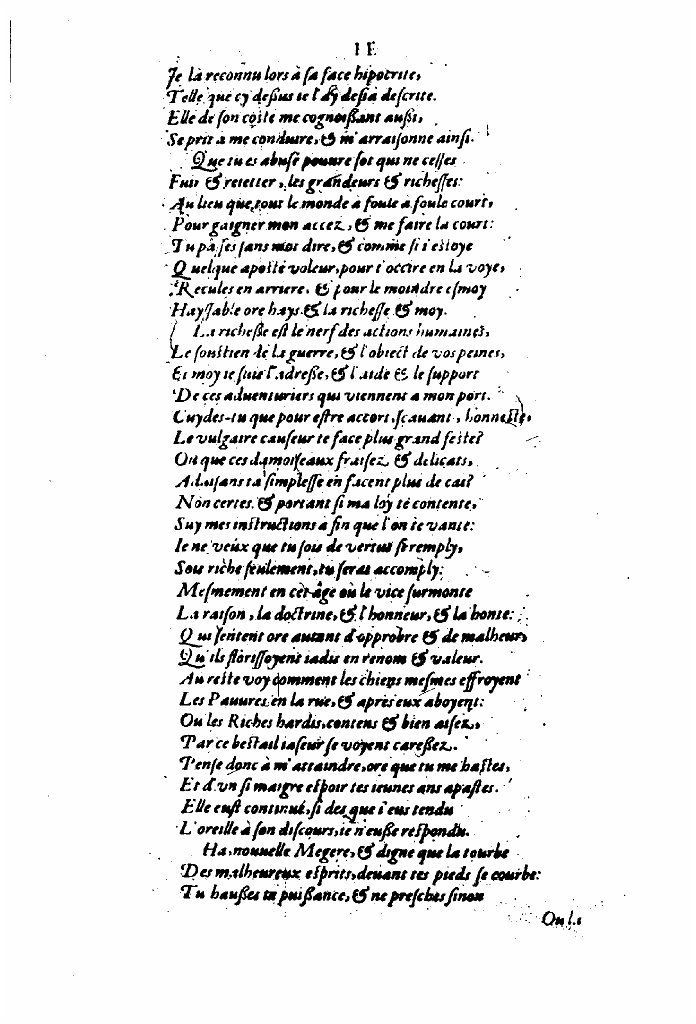 11
Je la reconnu lors à sa face hipocrite,
Telle que cy dessus ie l'ay desia descrite.
Elle de son costé me cognoissant aussi,
Se prit a me conduire, & m'arraisonne ainsi.
Que tu es abusé pouure sot qui ne cesses
Fuir & reietter, les grandeurs & richesses:
Au lieu que tout le monde a foule a foule court,
Pour gaigner mon accez, & me faire la court:
Tu passes sans mot dire, & comme si i'estoye
Quelque aposté voleur, pour t'occire en la voye,
Recules en arriere, & pour le moindre esmoy
Hayssable ore hays & la richesse & moy.
La richesse est le nerf des actions humaines,
Le soustien de la guerre, & l'obiect de vos peines,
Et moy ie suis l'adresse, & l'aide & le support
De ces aduenturiers qui viennent a mon port.
Cuydes-tu que pour estre accort, sçauant, honneste,
Le vulgaire causeur te face plus grand feste?
Ou que ces damoiseaux fraisez & delicats,
Aduisans ta simplesse en facent plus de cas?
Non certes. & portant si ma loy te contente,
Suy mes instructions a fin que l'on te vante:
Ie ne veux que tu sois de vertus si remply,
Sois riche seulement, tu seras accomply:
Mesmement en cet âge où le vice surmonte
La raison, la doctrine, & l'honneur, & la honte:
Qui sentent ore autant d'opprobre & de malheur,
Qu'ils florissoyent iadis en renom & valeur.
Au reste voy comment les chiens mesmes effroyent
Les Pauures en la rue, & apres eux aboyent:
Ou les Riches hardis, contens & bien aisez,
Par ce bestail iaseur se voyent caressez.
Pense donc à m'attaindre, ore que tu me hastes,
Et d'vn si maigre espoir tes ieunes ans apastes.
Elle eust continué, si des que i'eus tendu
L'oreille à son discours, ie n'eusse respondu.
Ha, nouuelle Megere, & digne que la tourbe
Des malheureux esprits, deuant tes pieds se courbe:
Tu hausses ta puissance, & ne presches sinon
Ou la